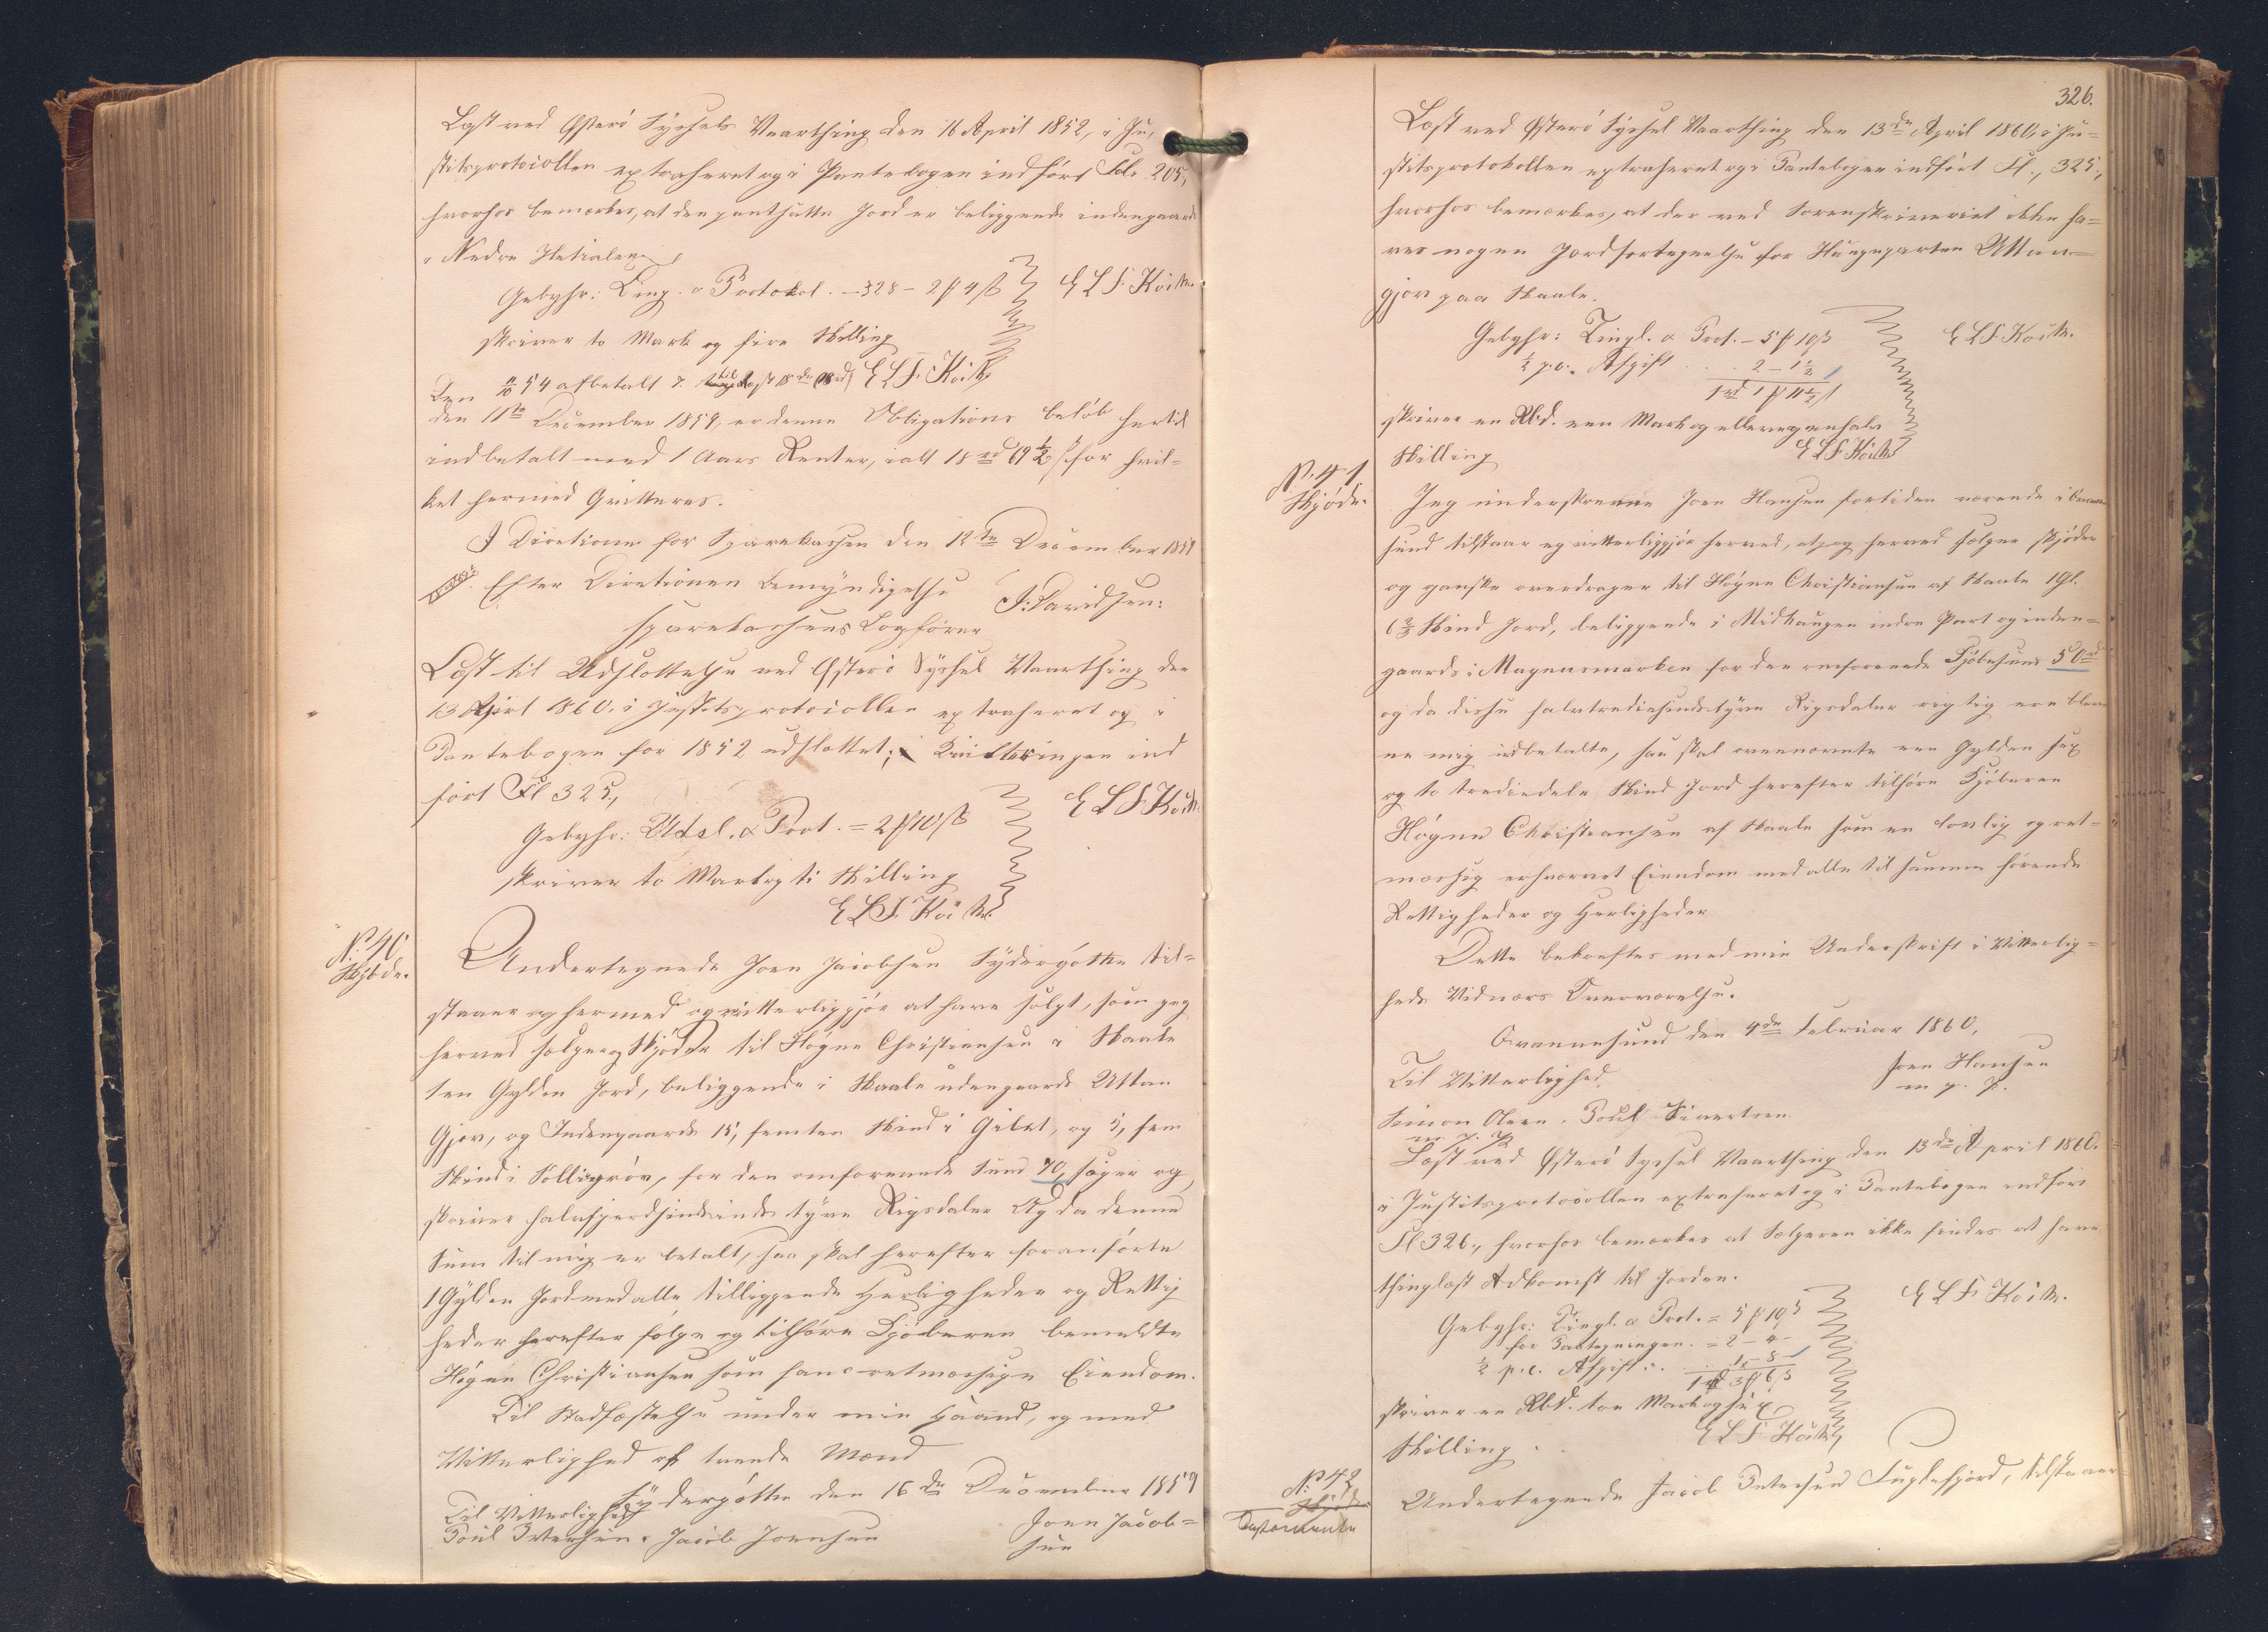 Læst ved Østerø Syssels Vaarthing den 16 April 1852, i Ju-
stitsprotocollen extraheret og i Pantebogen indført Fol. 205,
hvorhos bemærkes, at den pantsatte Jord er beliggende indengaards
i Nedre
Gebyhr: Ting. & Protokol. - 328 - 2 # 4 ß E L F Koch.
skriver to Mark og fire Skilling
Den 11/10 54 afbetalt E L F. Koch
den 11te December 1859, er denne Obligations beløb hertil
indbetalt med 1 Aars Renter, ialt 18 rd 69 1/2 ß for hvil-
ket hermed Qvitteres.
I Directionen for Sparekassen den 12te December 1859
Efter Directionen bemyndigelse J: Davidsen:
Sparekassens Bogfører
Læst til Udslettelse ved Østerø Syssel Vaarthing den
13 April 1860. i Justitsprotocollen extraheret og i
Pantebogen for 1852 udslettet; Qvitteringen ind
ført Fl 325,
Gebyhr: Udsl. & Prot. = 2 # 10 ß E L F Koch
skriver to Mark og ti Skilling
E L F Koch.
No. 40
Skjøde.
Undertegnede Joen Jacobsen Sydergøthe til-
staaer og hermed vitterliggjør at have solgt, som jeg
herved sælger og Skjøder til Høgne Christiansen i Skaale
1 en Gylden Jord, beliggende i Skaale udengaards Uttan
Gjov, og Indengaards 15, femten Skind i Gilet, og 5, fem
Skind i, for den omforenede Sum 70, siger og
skriver halvfjerdsindstyve Rigsdaler Og da denne
Sum til mig er betalt, saa skal herefter foranførte
1 Gylden Jord med alle tilliggende Herligheder og Rettig
heder herefter følge og tilhøre Kjøberen bemeldte
Høgne Christiansen som hans retmæssige Eiendom.
Til Stadfæstelse under min Haand, og med
Vitterlighed af tvende Mænd
Sydergøthe den 16de December 1859
Til Vitterlighed
Poul Petersen. Jacob Joensen Joen Jacob=
sen
326.
Læst ved Østerø Syssel Vaarthing den 13de April 1860. i Ju=
stitsprotokollen extraheret og i Pantebogen indført Fl., 325.,
hvorhos bemærkes, at der ved Sorenskriveriet ikke ha=
ves nogen Jordfortegnelse for Haugeparten Uttan-
gjov paa Skaale.
Gebyhr: Tingl. & Prot. - 5 # 10 ß E L F. Koch.
1/2 p.c. Afgift . . . 2 - 1 1/2
1 rd 1 # 11 1/2 ß
skriver en Rbd. een Mark og elleve og en halv
Skilling E L F Koch
No. 41
Skjøde.
Jeg underskrevne Joen Hansen fortiden værende i Qvanne
sund tilstaar og vitterliggjør herved, at jeg herved sælger skjøder
og ganske overdrager til Høgne Christiansen af Skaale 1 Gl.
6 2/3 Skind Jord, beliggende i Midhaugen indre Part og inden=
gaards i Magnusmarken for den omforenede Kjøbesum 50 rd
og da disse halvtredsindstyve Rigsdaler rigtig ere bleve
ne mig udbetalte, saa skal ovennævnte een Gylden sex
og to trediedele Skind Jord herefter tilhøre Kjøberen
Høgne Christiansen af Skaale som en lovlig og ret=
mæssig erhvervet Eiendom med alle til samme hørende
Rettigheder og Herligheder
Dette bekræftes med min Underskrift i Vitterlig=
heds Vidners Overværelse.
Qvannesund den 4de Februar 1860,
Til Vitterlighed Joen Hansen
m. p. p.
Simon Olsen. Poul Sivertsen
m. p. p.
Læst ved Østerø Syssel Vaarthing den 13de April 1860.
i Justitsprotocollen extraheret og i Pantebogen indført
Fl 326., hvorhos bemærkes at Sælgeren ikke findes at have
thinglæst Adkomst til Jorden.
Gebyhr: Tingl. & Prot. = 5 # 10 ß E L F Koch.
for Paategningen. = 2 - 4 -
1/2 p.c. Afgift . . . 1 - 8 -
1 rd 3 # 6 ß
skriver en Rbd. tre Mark og sex
Skilling. E L F Koch
No. 42
Skjøde
Testamente
Undertegnede Jacob Petersen Fuglefjord, tilstaaer